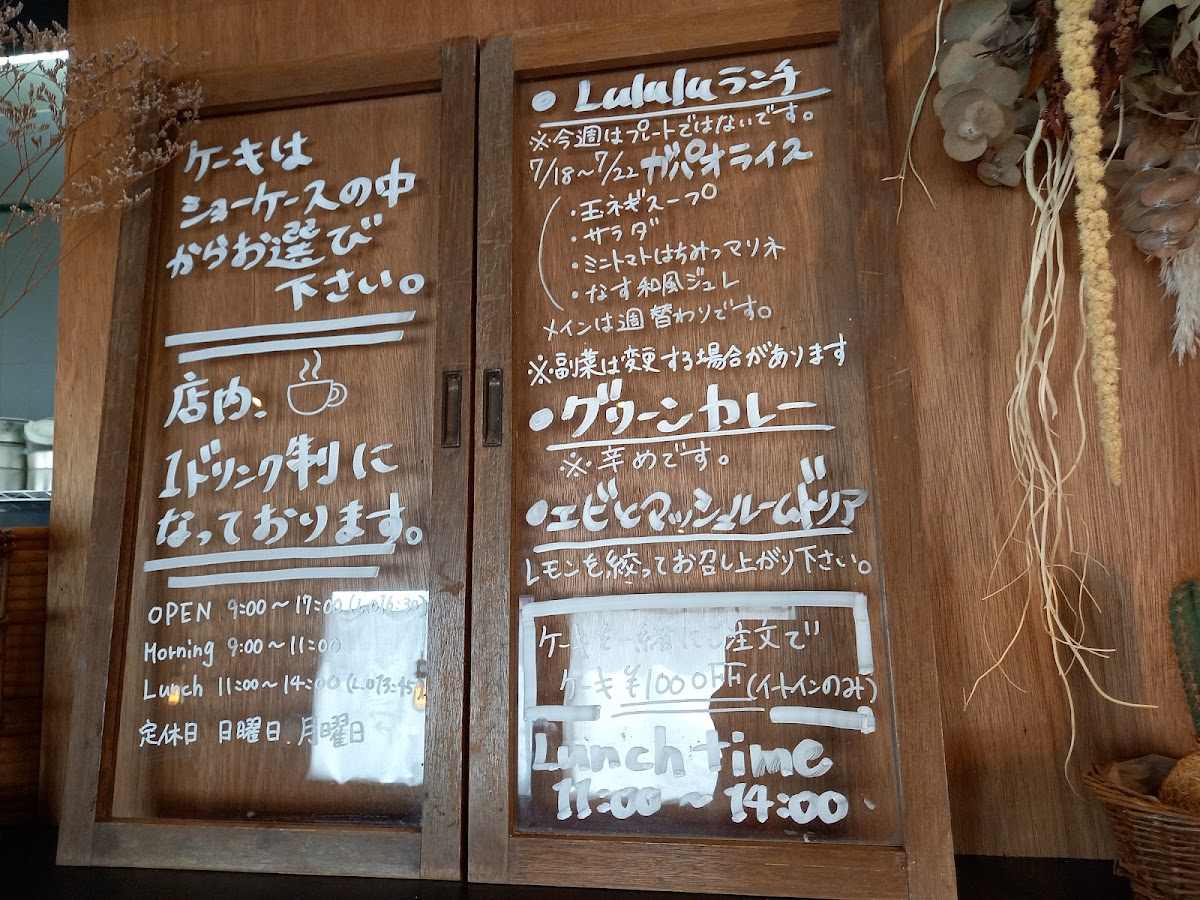 ケーキは
ショーケースの中
からお選び
下さい。
店内、
1ドリンク制に
なっております。
OPEN 9:00～17:00 (L.O16:30)
Morning 9:00～11:00
Lunch 11:00～14:00 (L.O13:45)
定休日 日曜日、月曜日
• Lululuランチ
※今週はプレートではないです。
7/18～7/22 ガパオライス
・玉ネギスープ
・サラダ
・ミニトマトはちみつマリネ
・なす和風ジュレ
メインは週替わりです。
※副菜は変更する場合があります
• グリーンカレー
※辛めです。
• エビとマッシュルームドリア
レモンを絞ってお召し上がり下さい。
ケーキを 注文で
ケーキ¥100OFF(イートインのみ)
Lunch time
11:00～14:00